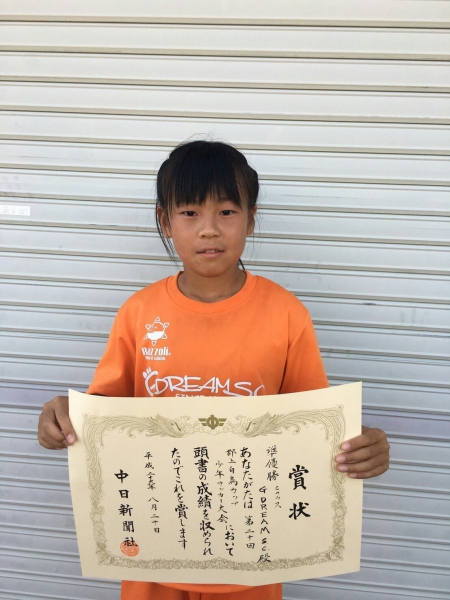 Buzzoli
GDREAM SC
賞状
準優勝
GDREAM SC殿
あなたがたは第二十回
郡上白鳥カップ
少年サッカー大会において
頭書の成績を収められ
たのでこれを賞します
八月二十日
中日新聞社